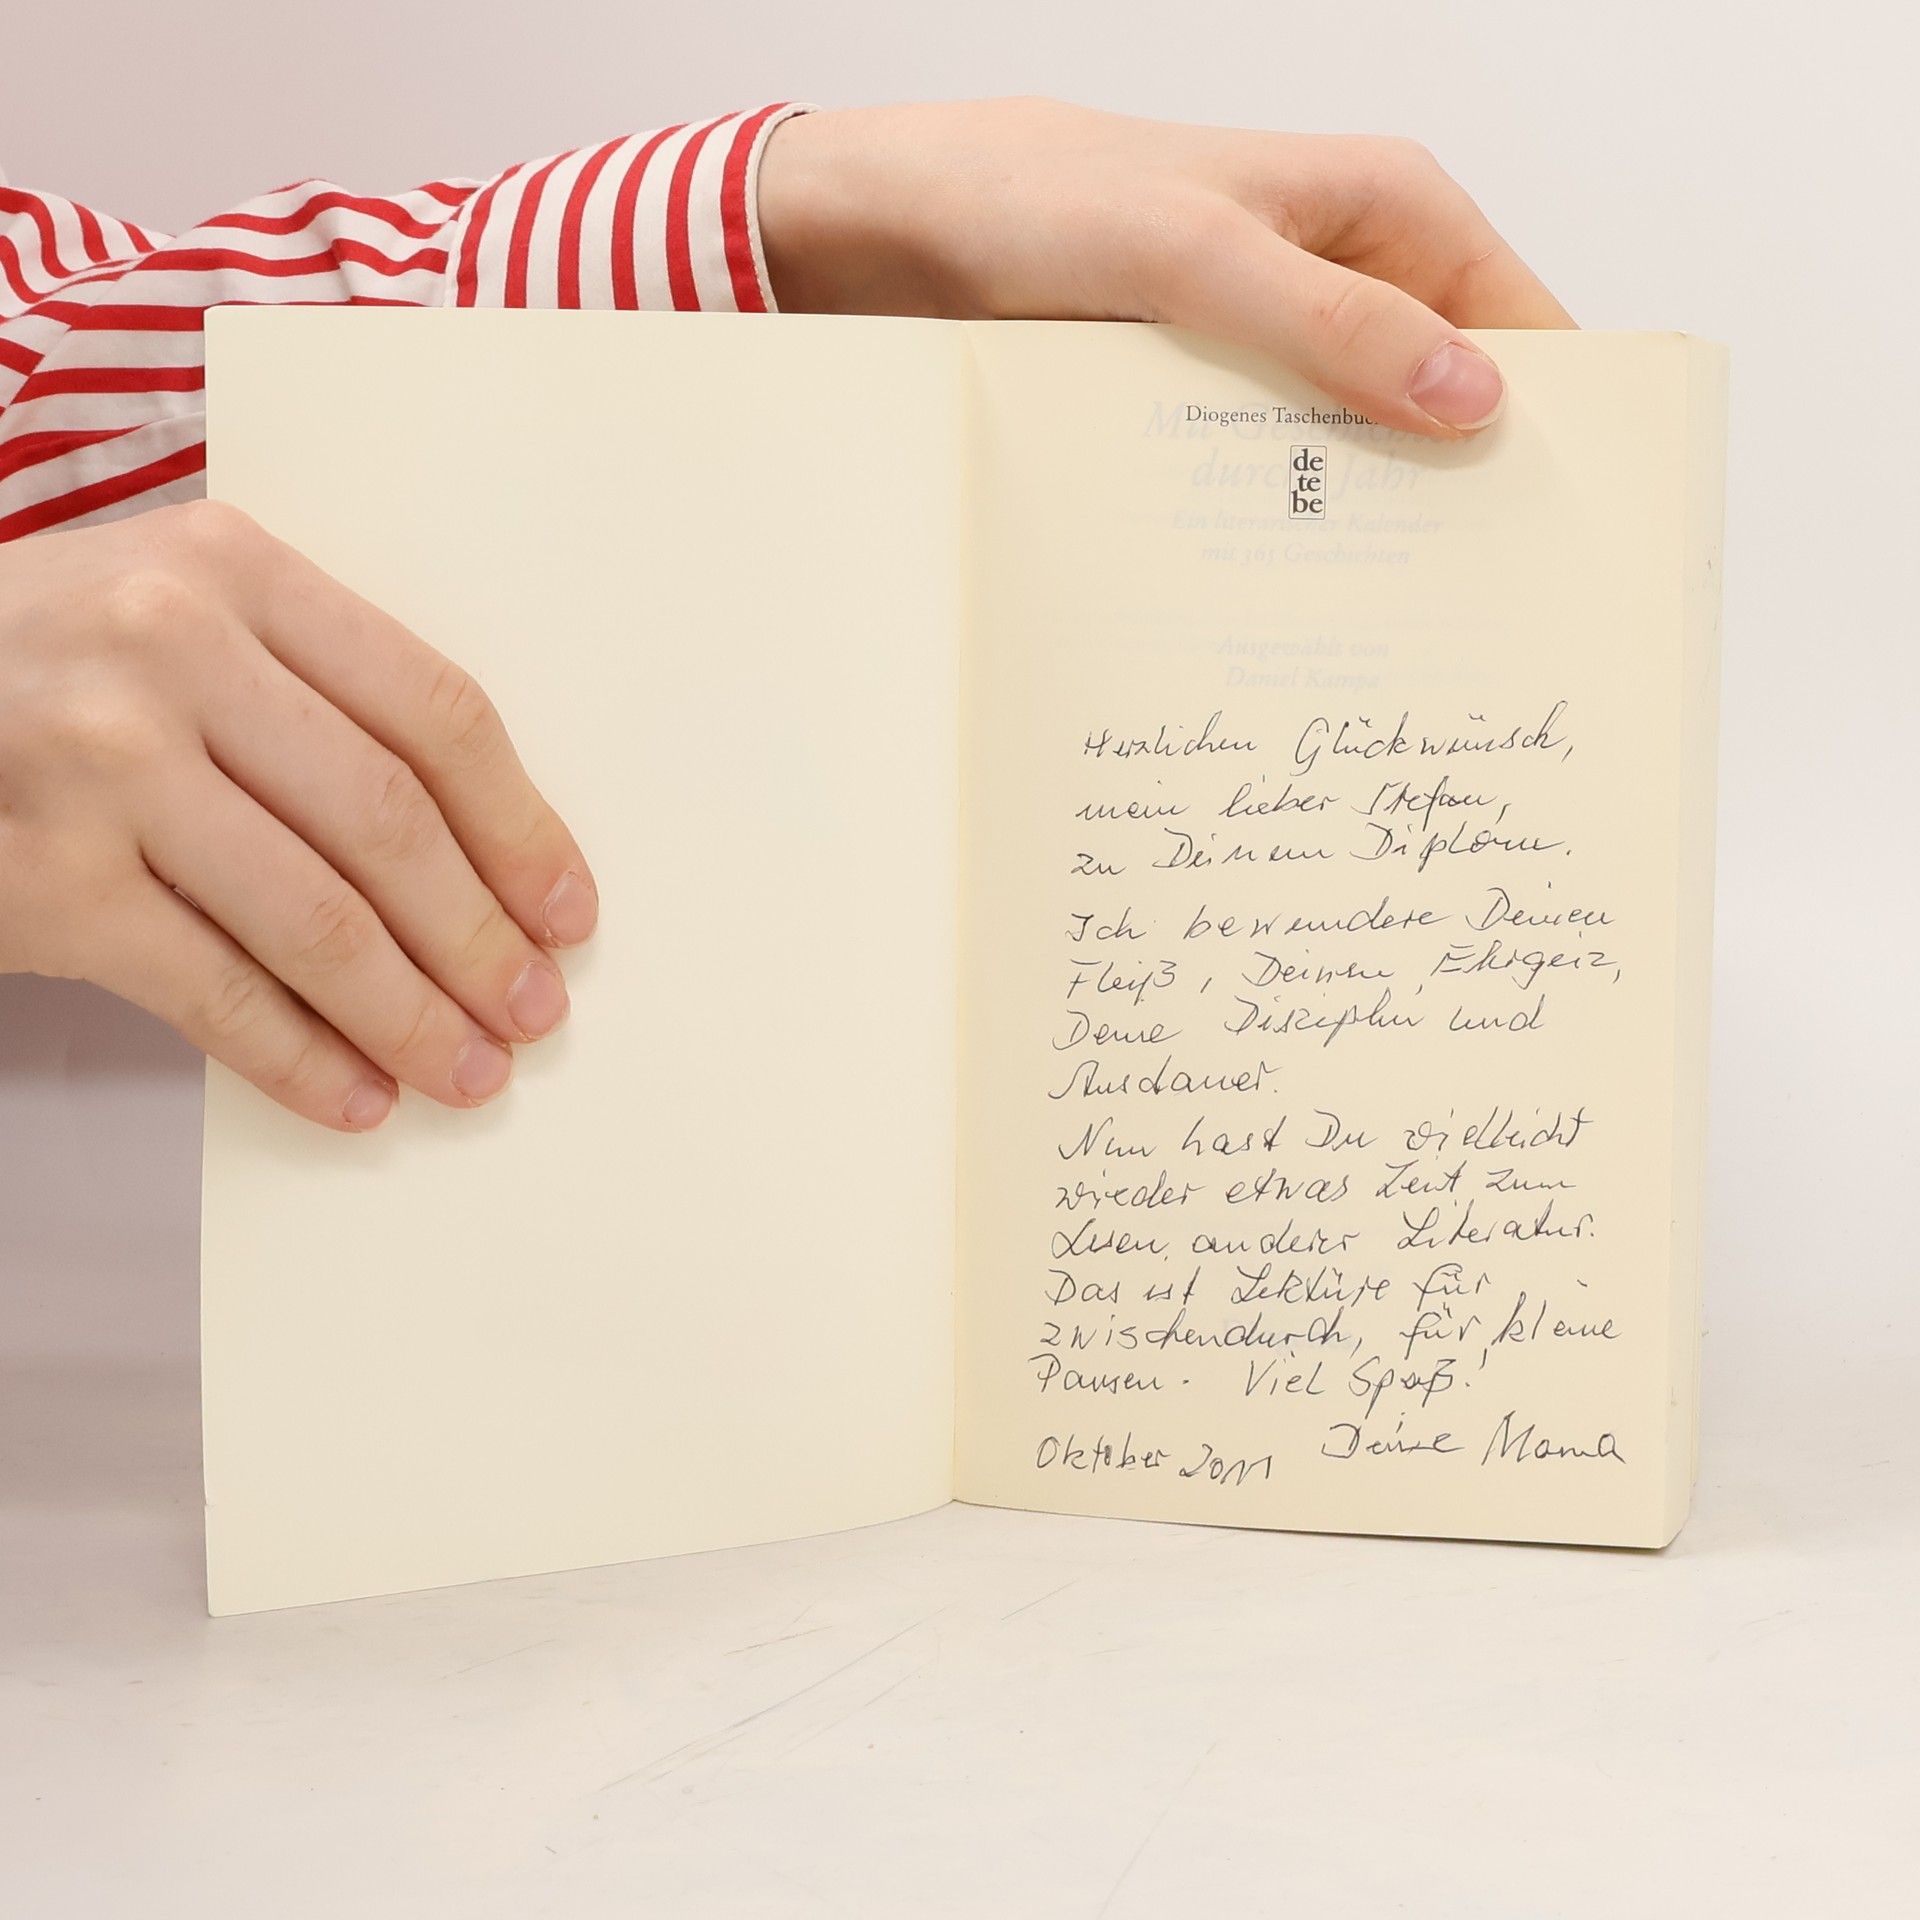 Diogenes Taschenbuc
de
te
be
Mit Geschichten
durchs Jahr
Ein literarischer Kalender
mit 365 Geschichten
Ausgewählt von
Daniel Kampa
Herzlichen Glückwünsch,
mein lieber Stefan,
zu Deinem Diplom.
Ich bewundere Deinen
Fleiß, Deinen Ehrgeiz,
Deine Disziplin und
Ausdauer.
Nun hast Du vielleicht
wieder etwas Zeit zum
Lesen anderer Literatur.
Das ist Lektüre für
zwischendurch, für kleine
Pausen. Viel Spaß!
Oktober 2011 Deine Mama